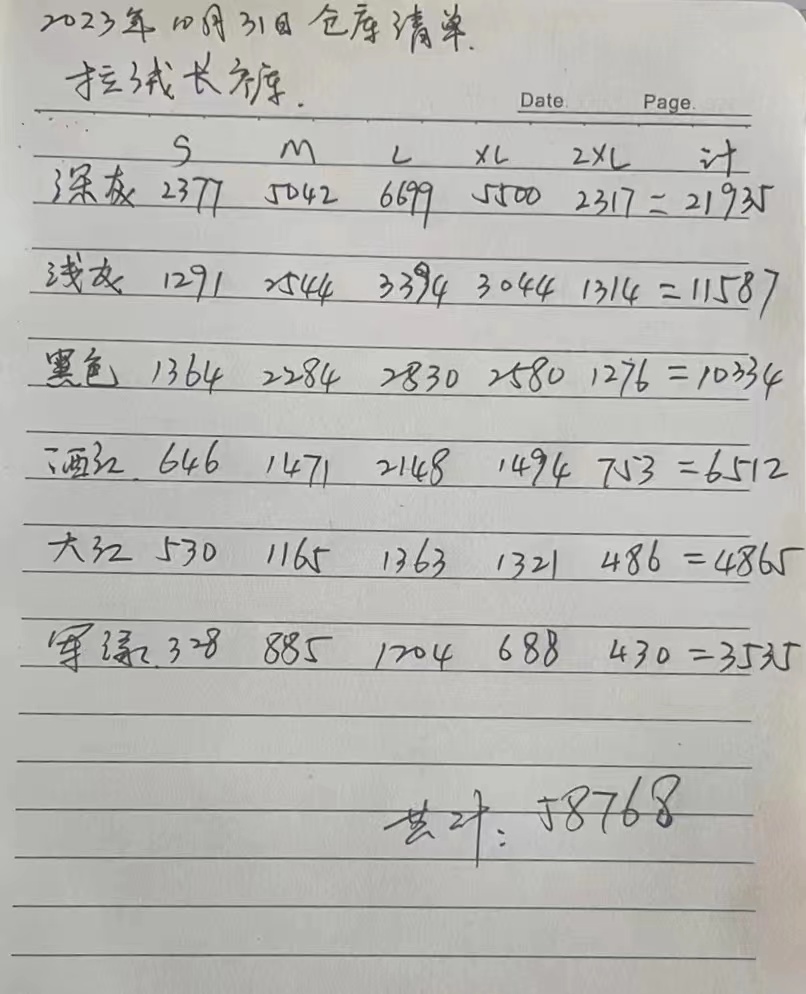 2023年10月31日 仓库清单.
拉绒长夯库.
Date. Page.
S M L XL 2XL 计
深灰 2377 5042 6699 5500 2317 = 21935
浅灰 1291 2544 3394 3044 1314 = 11587
黑色 1364 2284 2830 2580 1276 = 10334
酒红. 646 1471 2148 1494 753 = 6512
大红 530 1165 1363 1321 486 = 4865
军绿. 328 885 1204 688 430 = 3535
共计: 58768